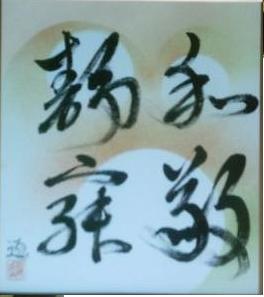 和敬
静寂